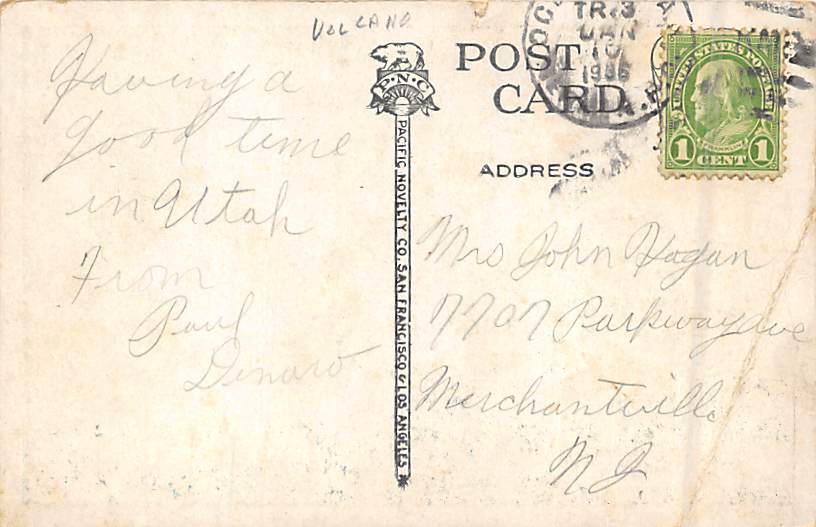 VOLCANO
Having a
good time
in Utah
From
Paul
Denaro
P.N.C.
PACIFIC NOVELTY CO. SAN FRANCISCO & LOS ANGELES
POST
CARD
ADDRESS
TR. 3
JAN
10
UNITED STATES POSTAGE
FRANKLIN
1 CENT 1
Mrs John Hogan
7707 Parkway ave
Merchantville
N J